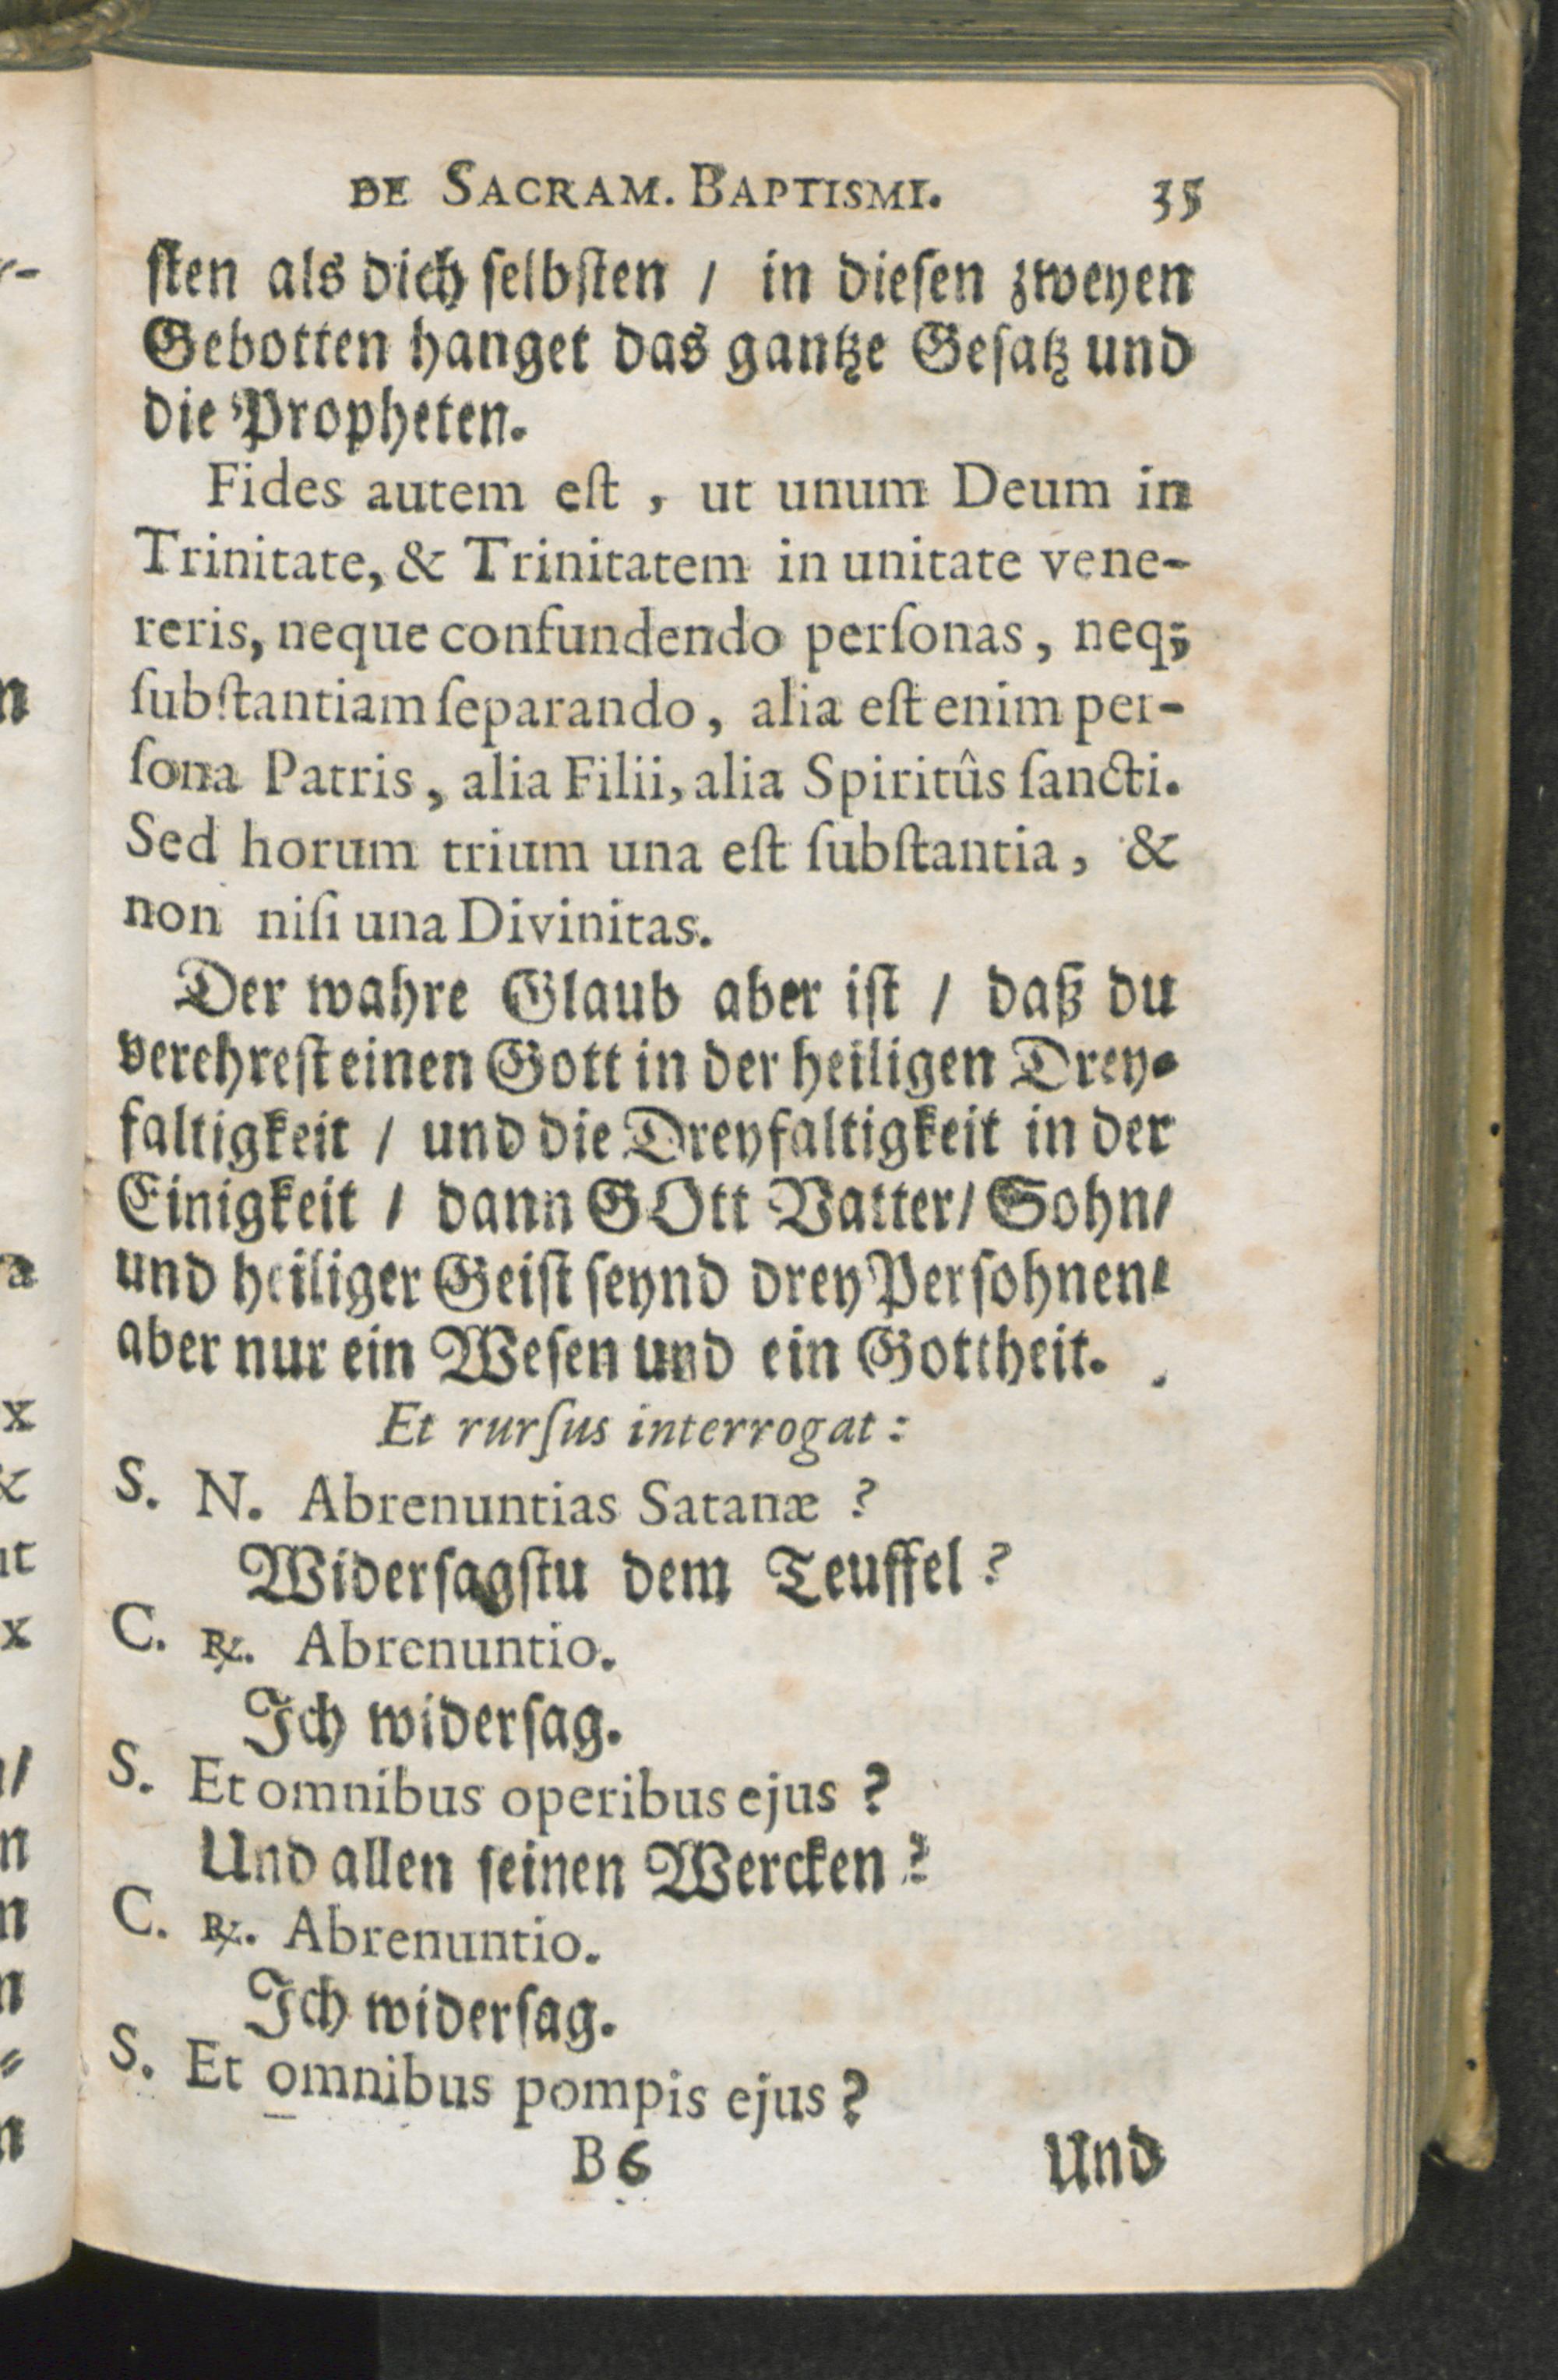 DE SACRAM. BAPTISMI. 35
ſten als dich ſelbſten / in dieſen zweyen
Gebotten hanget das gantze Geſatz und
die Propheten.
Fides autem eſt, ut unum Deum in
Trinitate, & Trinitatem in unitate vene-
reris, neque confundendo perſonas, neq;
ſubſtantiam ſeparando, alia eſt enim per-
ſona Patris, alia Filii, alia Spiritûs ſancti.
Sed horum trium una eſt ſubſtantia, &
non niſi una Divinitas.
Der wahre Glaub aber iſt / daß du
verehreſt einen Gott in der heiligen Drey-
faltigkeit / und die Dreyfaltigkeit in der
Einigkeit / dann GOtt Vatter / Sohn /
und heiliger Geiſt ſeynd drey Perſohnen /
aber nur ein Weſen und ein Gottheit.
Et rurſus interrogat:
S. N. Abrenuntias Satanæ ?
Widerſagſtu dem Teuffel ?
C. ℞. Abrenuntio.
Ich widerſag.
S. Et omnibus operibus ejus ?
Und allen ſeinen Wercken ?
C. ℞. Abrenuntio.
Ich widerſag.
S. Et omnibus pompis ejus ?
B 6 Und